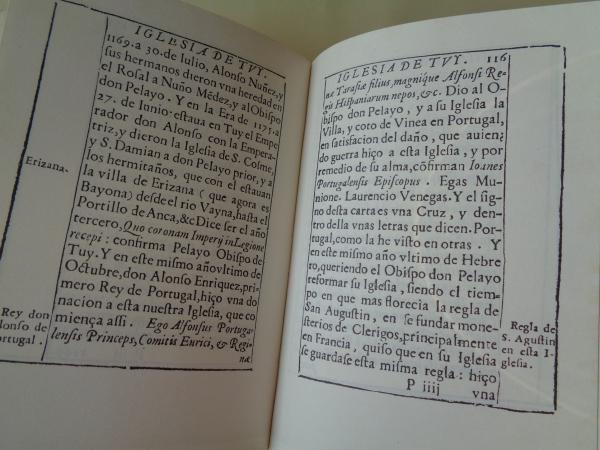 IGLESIA DE TVY.
1169. a 30. de Iulio, Alonso Nuñez, y
sus hermanos dieron vna heredad en
el Rosal a Nuño Médez, y al Obispo
don Pelayo. Y en la Era de 1175. a
27. de Iunio estaua en Tuy el Empe
rador don Alonso con la Empera-
triz, y dieron la Iglesia de S. Cosme,
y S. Damian a don Pelayo prior, y a
los hermitaños, que con el estauan
Erizana.
la villa de Erizana (que agora es
Bayona) desde el rio Vayna, hasta el
Portillo de Anca, &c Dize ser el año
tercero, Quo coronam Imperij in Legione
recepi: confirma Pelayo Obispo de
Tuy. Y en este mismo año vltimo de
Octubre, don Alonso Enriquez, pri-
mero Rey de Portugal, hiço vna do
nacion a esta nuestra Iglesia, que co
Rey don
lonso de
ortugal.
miença assi. Ego Alfonsus Portuga-
lensis Princeps, Comitis Eurici, & Regi-
næ
IGLESIA DE TVY. 116
næ Tarasiæ filius, magnique Alfonsi Re-
gis Hispaniarum nepos, &c. Dio al O-
bispo don Pelayo, y a su Iglesia la
Villa, y coto de Vinea en Portugal,
en satisfacion del daño, que auien
do guerra hiço a esta Iglesia, y por
remedio de su alma, cõfirman Ioanes
Portugalensis Episcopus. Egas Mu-
nione. Laurencio Venegas. Y el sig-
no desta carta es vna Cruz, y den-
tro della vnas letras que dicen. Por-
tugal, como la he visto en otras. Y
en este mismo año vltimo de Hebre
ro, queriendo el Obispo don Pelayo
reformar su Iglesia, siendo el tiem-
po en que mas florecia la regla de
San Augustin, en se fundar mone-
sterios de Clerigos, principalmente
en Francia, quiso que en su Iglesia
se guardase esta misma regla: hiço
Regla de
S. Agustin
en esta I-
glesia.
P iiij vna